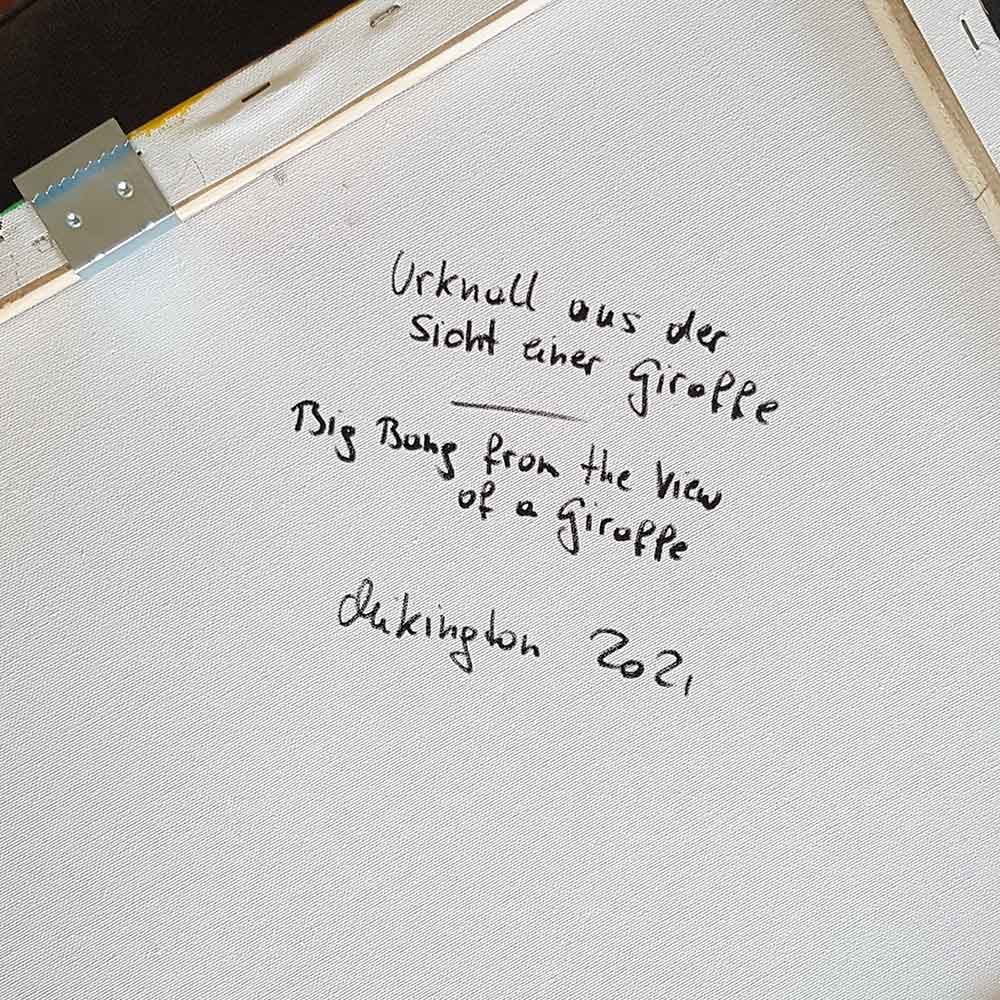 Urknall aus der
Sicht einer Giraffe
Big Bang from the View
of a Giraffe
2021